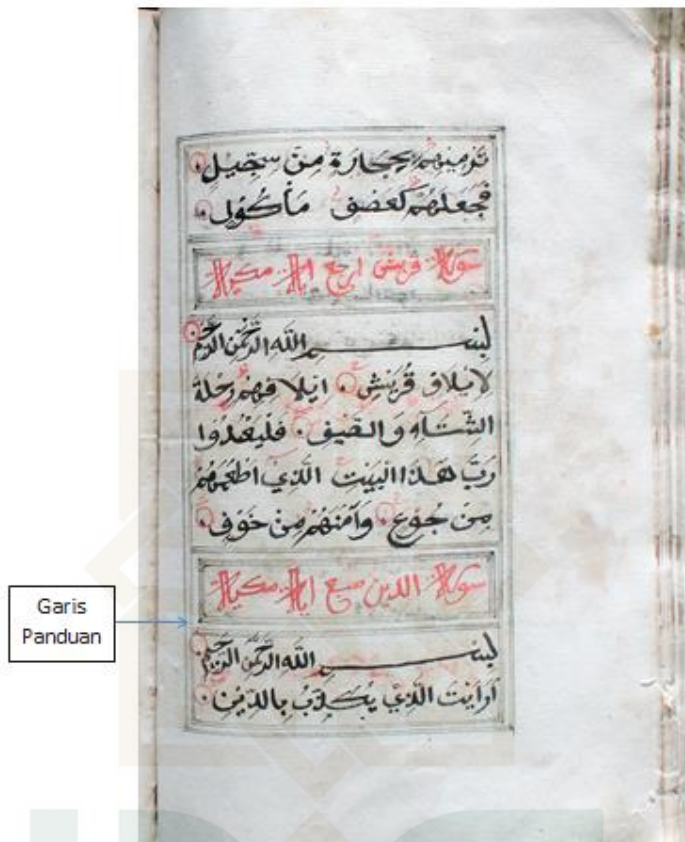 تَرْمِيْهِمْ بِحِجَارَةٍ مِنْ سِجِّيْلٍ
فَجَعَلَهُمْ كَعَصْفٍ مَأْكُوْلٍ
سورة قريش اربع اية مكية
بِسْمِ اللّٰهِ الرَّحْمٰنِ الرَّحِيْمِ
لِاِيْلَافِ قُرَيْشٍ اِيْلَا فِهِمْ رِحْلَةَ
الشِّتَآءِ وَالصَّيْفِ فَلْيَعْبُدُوا
رَبَّ هَذَا الْبَيْتِ الَّذِيْ اَطْعَمَهُمْ
مِنْ جُوْعٍ وَآمَنَهُمْ مِنْ خَوْفٍ
سورة الدين سبع اية مكية
Garis
Panduan
بِسْمِ اللّٰهِ الرَّحْمٰنِ الرَّحِيْمِ
اَرَاَيْتَ الَّذِيْ يُكَذِّبُ بِالدِّيْنِ